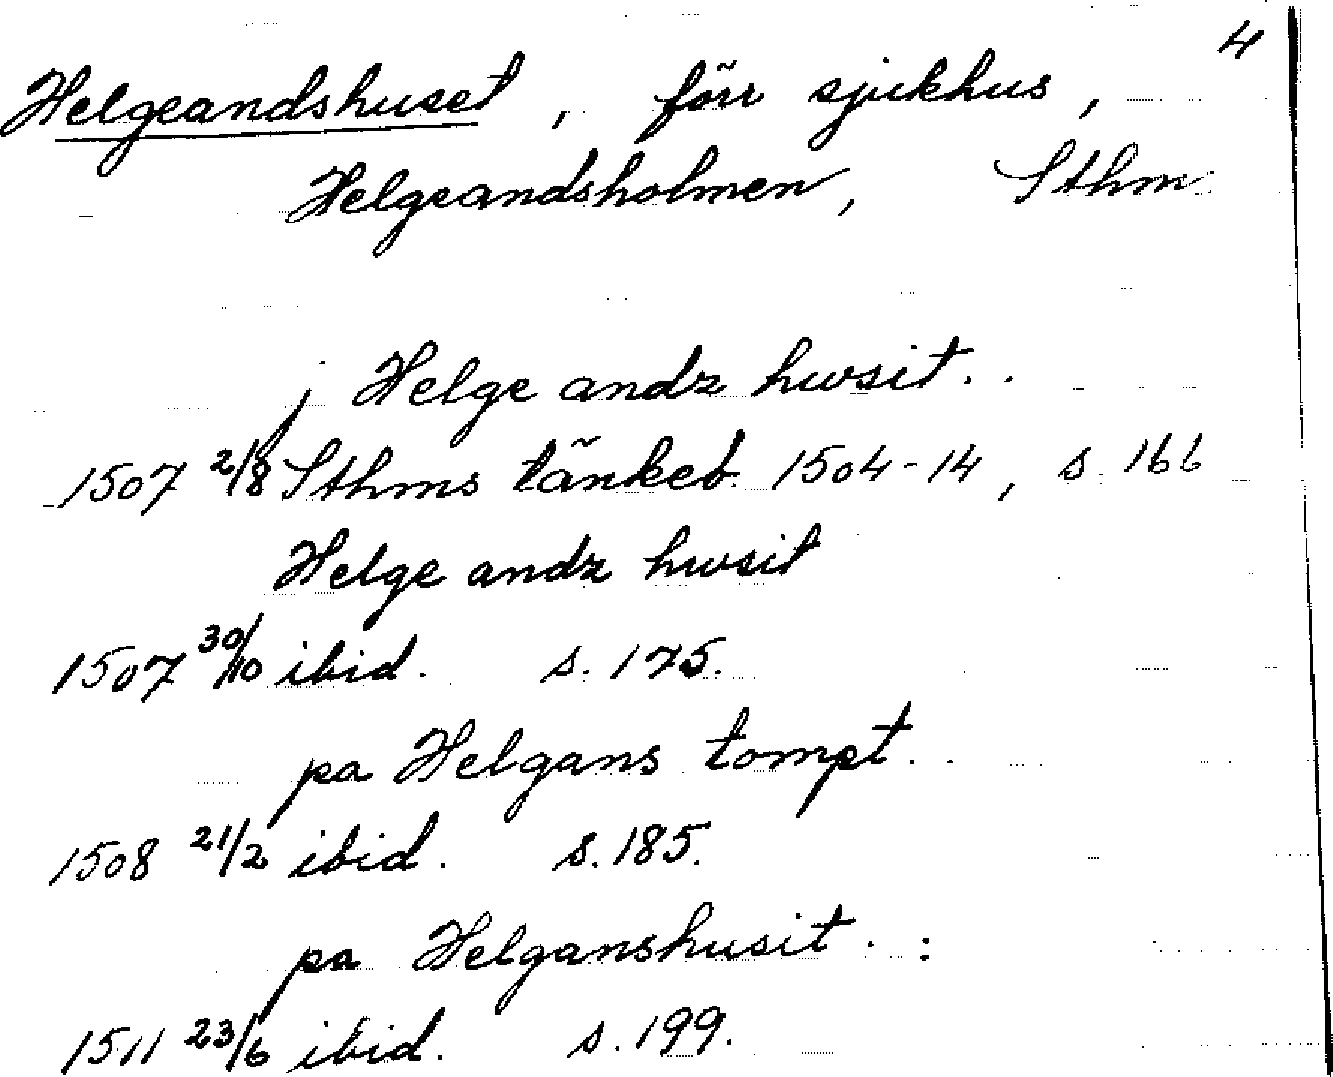 4
Helgeandshuset, förr sjukhus,
Helgeandsholmen, Sthm
j Helge andz hwsit..
1507 2/8 Sthms tänkeb. 1504-14, s. 166
Helge andz hwsit
1507 30/10 ibid. s. 175.
pa Helgans tompt..
1508 21/2 ibid. s. 185.
pa Helganshusit. :
1511 23/6 ibid. s. 199.